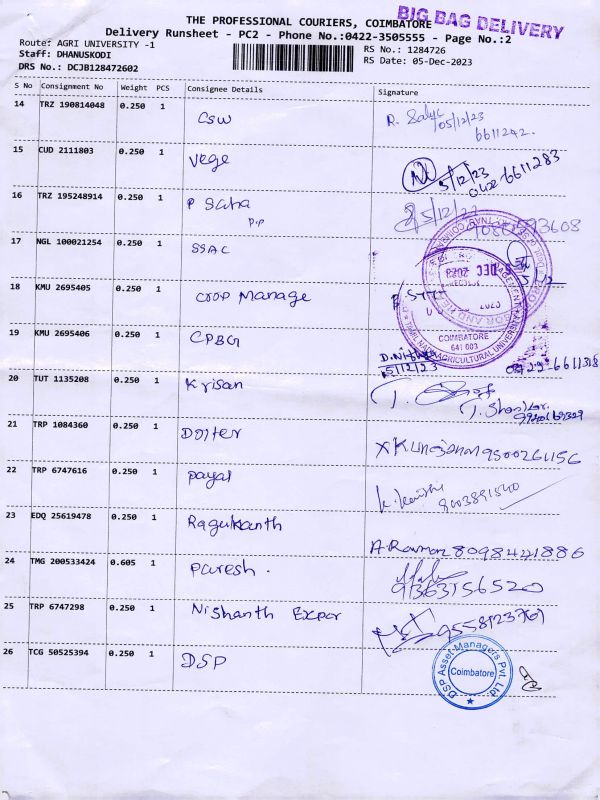 BIG BAG DELIVERY
THE PROFESSIONAL COURIERS, COIMBATORE
Delivery Runsheet - PC2 - Phone No.:0422-3505555 - Page No.:2
Route: AGRI UNIVERSITY -1
RS No.: 1284726
Staff: DHANUSKODI
RS Date: 05-Dec-2023
DRS No.: DCJB128472602
S No Consignment No Weight PCS Consignee Details Signature
14 TRZ 190814048 0.250 1 CSW R.
05/12/23
6611242.
15 CUD 2111803 0.250 1 Vege
5/12/23
0422-6611283
16 TRZ 195248914 0.250 1 P Saha
P.P
17 NGL 100021254 0.250 1 SSAC
18 KMU 2695405 0.250 1 Crop Manage
19 KMU 2695406 0.250 1 CPBG
COIMBATORE
641 003
TAMIL NADU AGRICULTURAL UNIVERSITY
5/12/23
20 TUT 1135208 0.250 1 Krisan
21 TRP 1084360 0.250 1 Doiter
9500261156
22 TRP 6747616 0.250 1 payal
8003891540
23 EDQ 25619478 0.250 1 Ragukanth
A.Raman 8098421886
24 TMG 200533424 0.605 1 Paresh.
9363756520
25 TRP 6747298 0.250 1 Nishanth Expor
9558123761
26 TCG 50525394 0.250 1 DSP
DSP Asset Managers Pvt. Ltd
Coimbatore